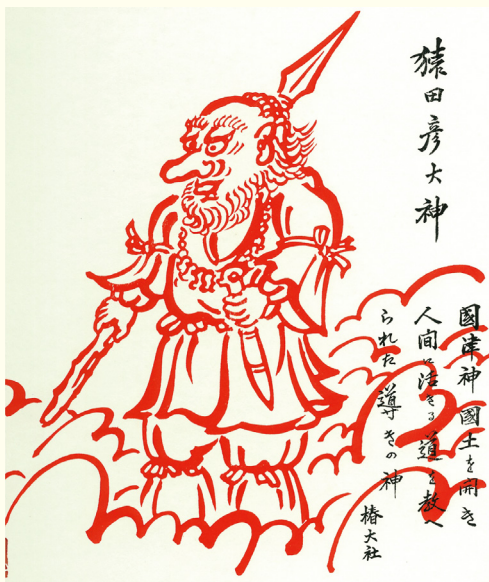 猿田彦大神
國津神國土を開き
人間に活きる道を教へ
られた導きの神
椿大社